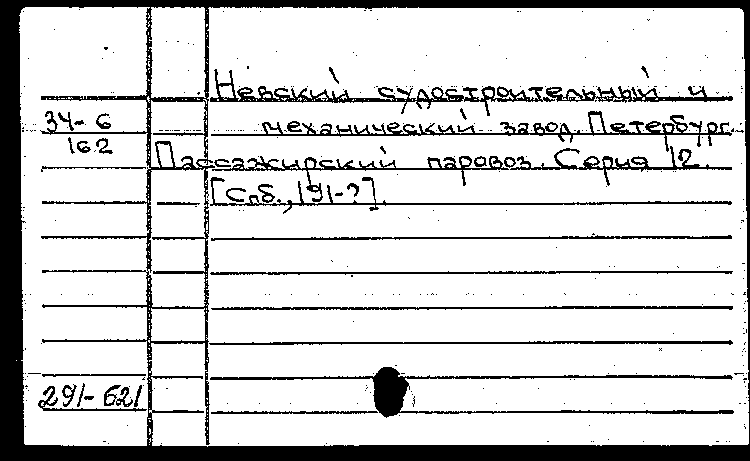 Невский судостроительный и
34-6
механический завод. Петербург.
162
Пассажирский паровоз. Серия 12.
[Спб., 191-?].
291-621